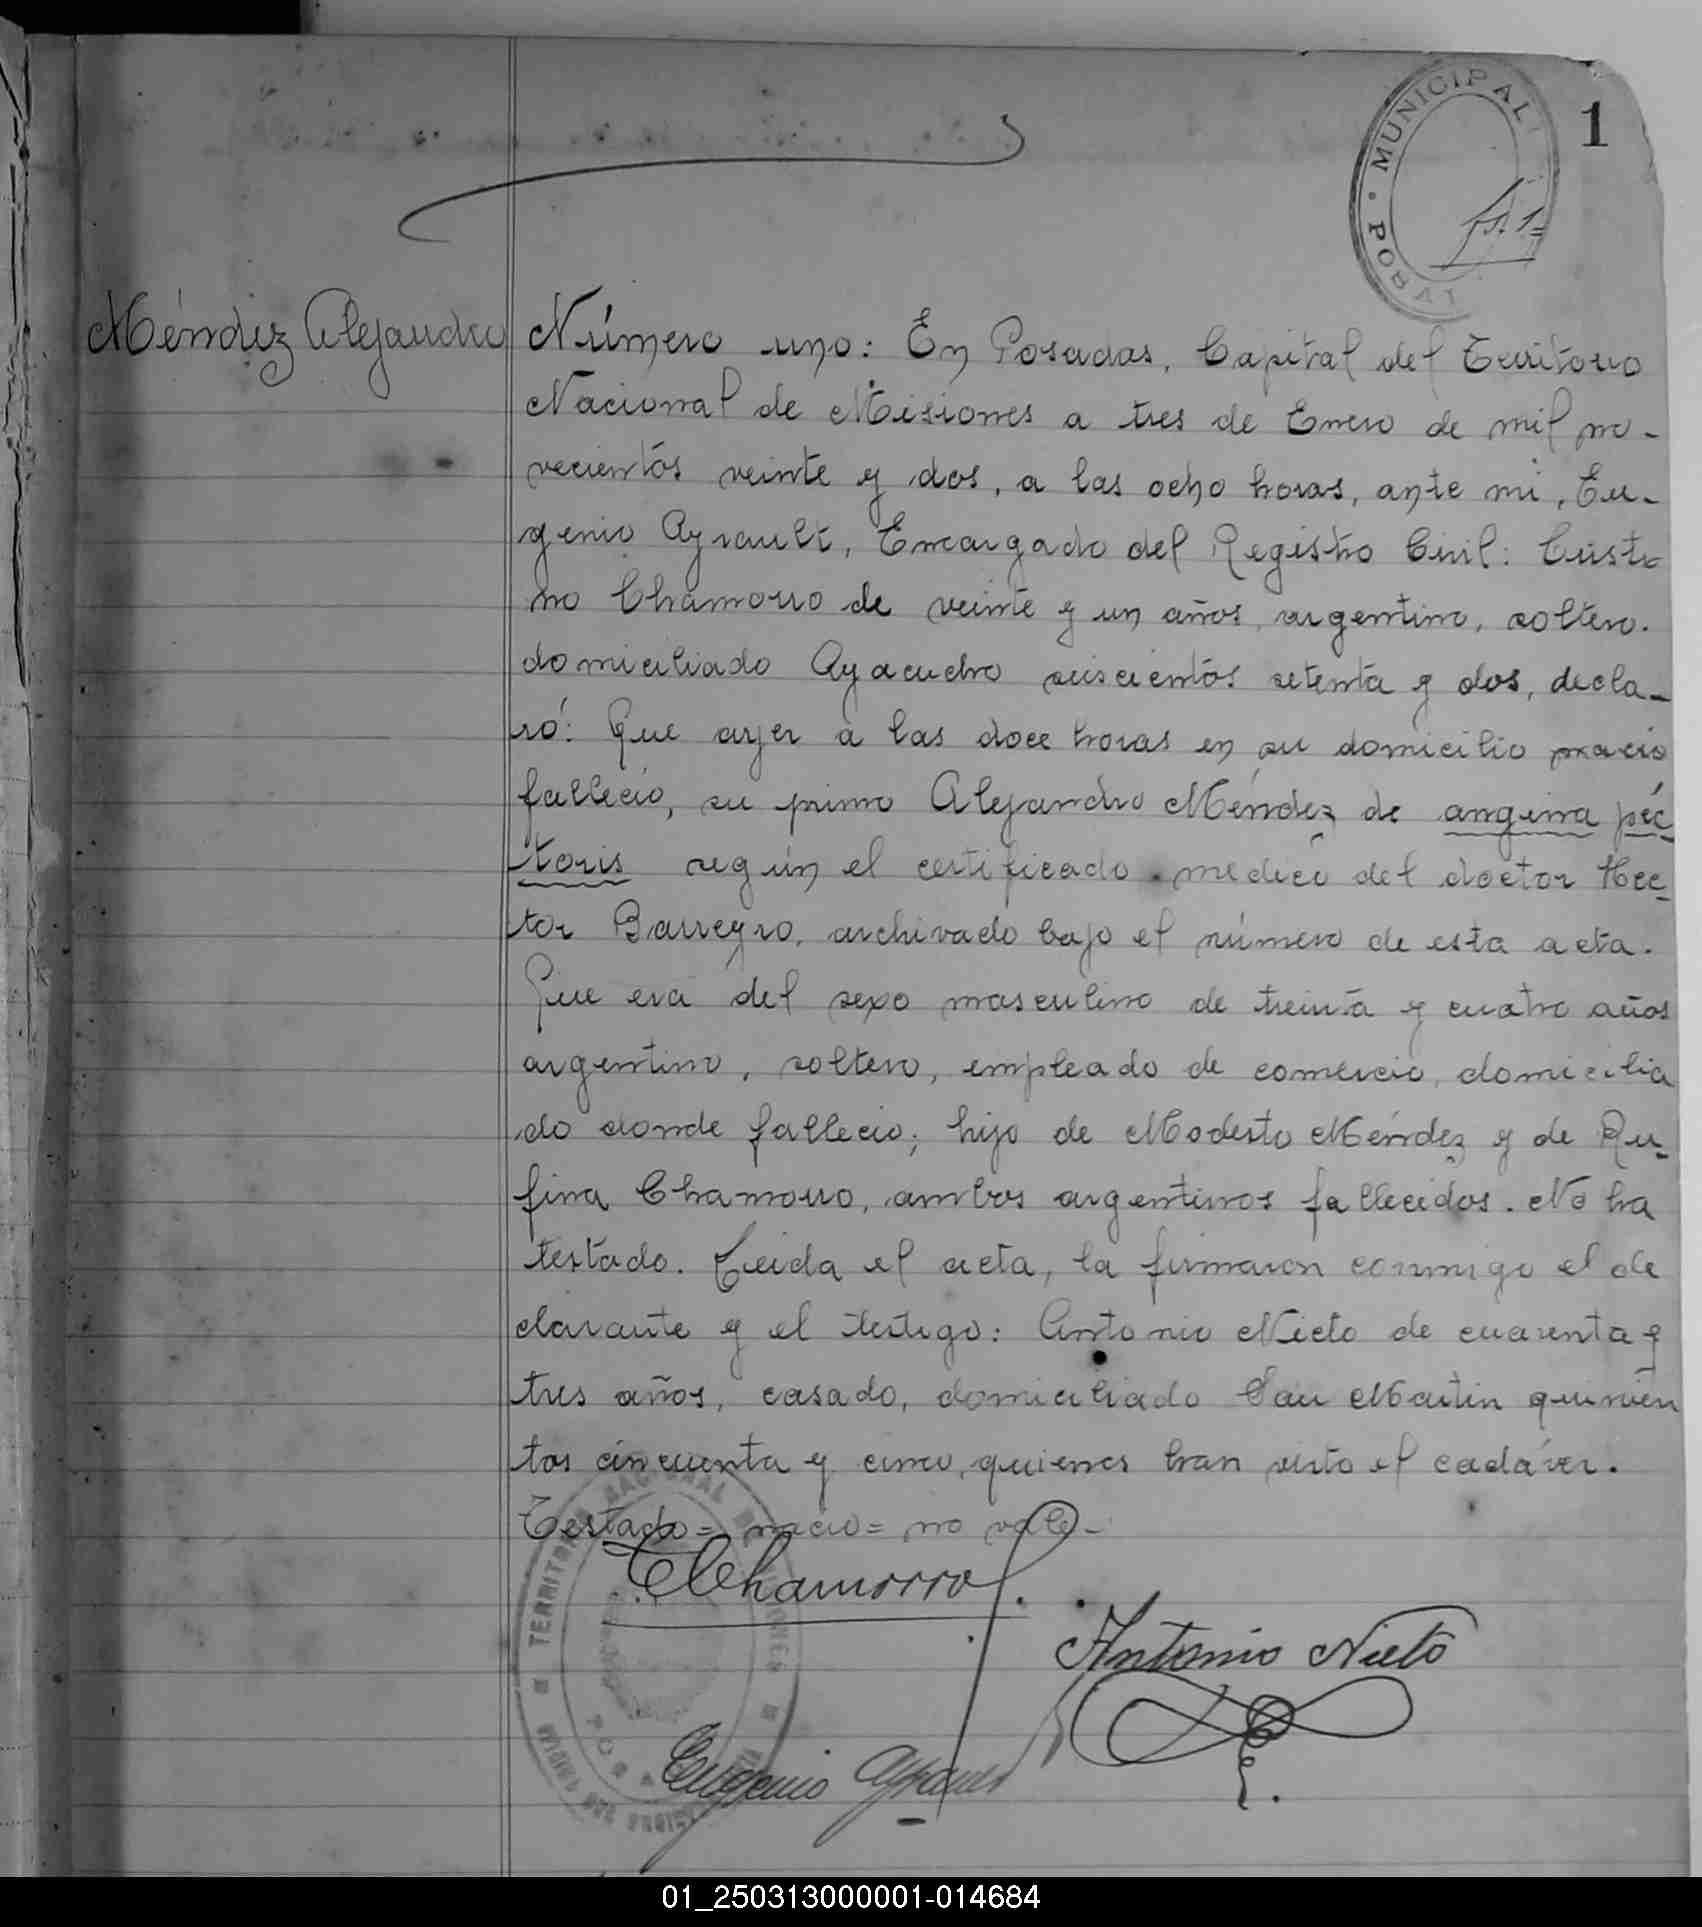 MUNICIPAL
1
fs. 1=
Méndez Alejandro
Número uno: En Posadas, Capital del Territorio
Nacional de Misiones a tres de Enero de mil no-
vecientos veinte y dos, a las ocho horas, ante mi, Eu-
genio Ayrault, Encargado del Registro Civil:
no Chamorro de veinte y un años, argentino, soltero.
domiciliado Ayacucho seiscientos setenta y dos, decla-
ró: Que ayer a las doce horas en su domicilio nació
falleció, su primo Alejandro Méndez de angina péc
toris según el certificado medico del doctor Hec-
tor Barreyro, archivado bajo el número de esta acta.
Que era del sexo masculino de treinta y cuatro años
argentino, soltero, empleado de comercio, domicilia
do donde fallecio; hijo de Modesto Méndez y de Ru-
fina Chamorro, ambos argentinos fallecidos. No ha
testado. Leida el acta, la firmaron conmigo el de
clarante y el testigo: Antonio Nieto de cuarenta y
tres años, casado, domiciliado San Martin quinien
tos cincuenta y cinco, quienes han visto el cadáver.
Testado= nació= no vale-
TERRITORIO NACIONAL DE MISIONES
Chamorro
Antonio Nieto
Eugenio Ayrault
01_250313000001-014684